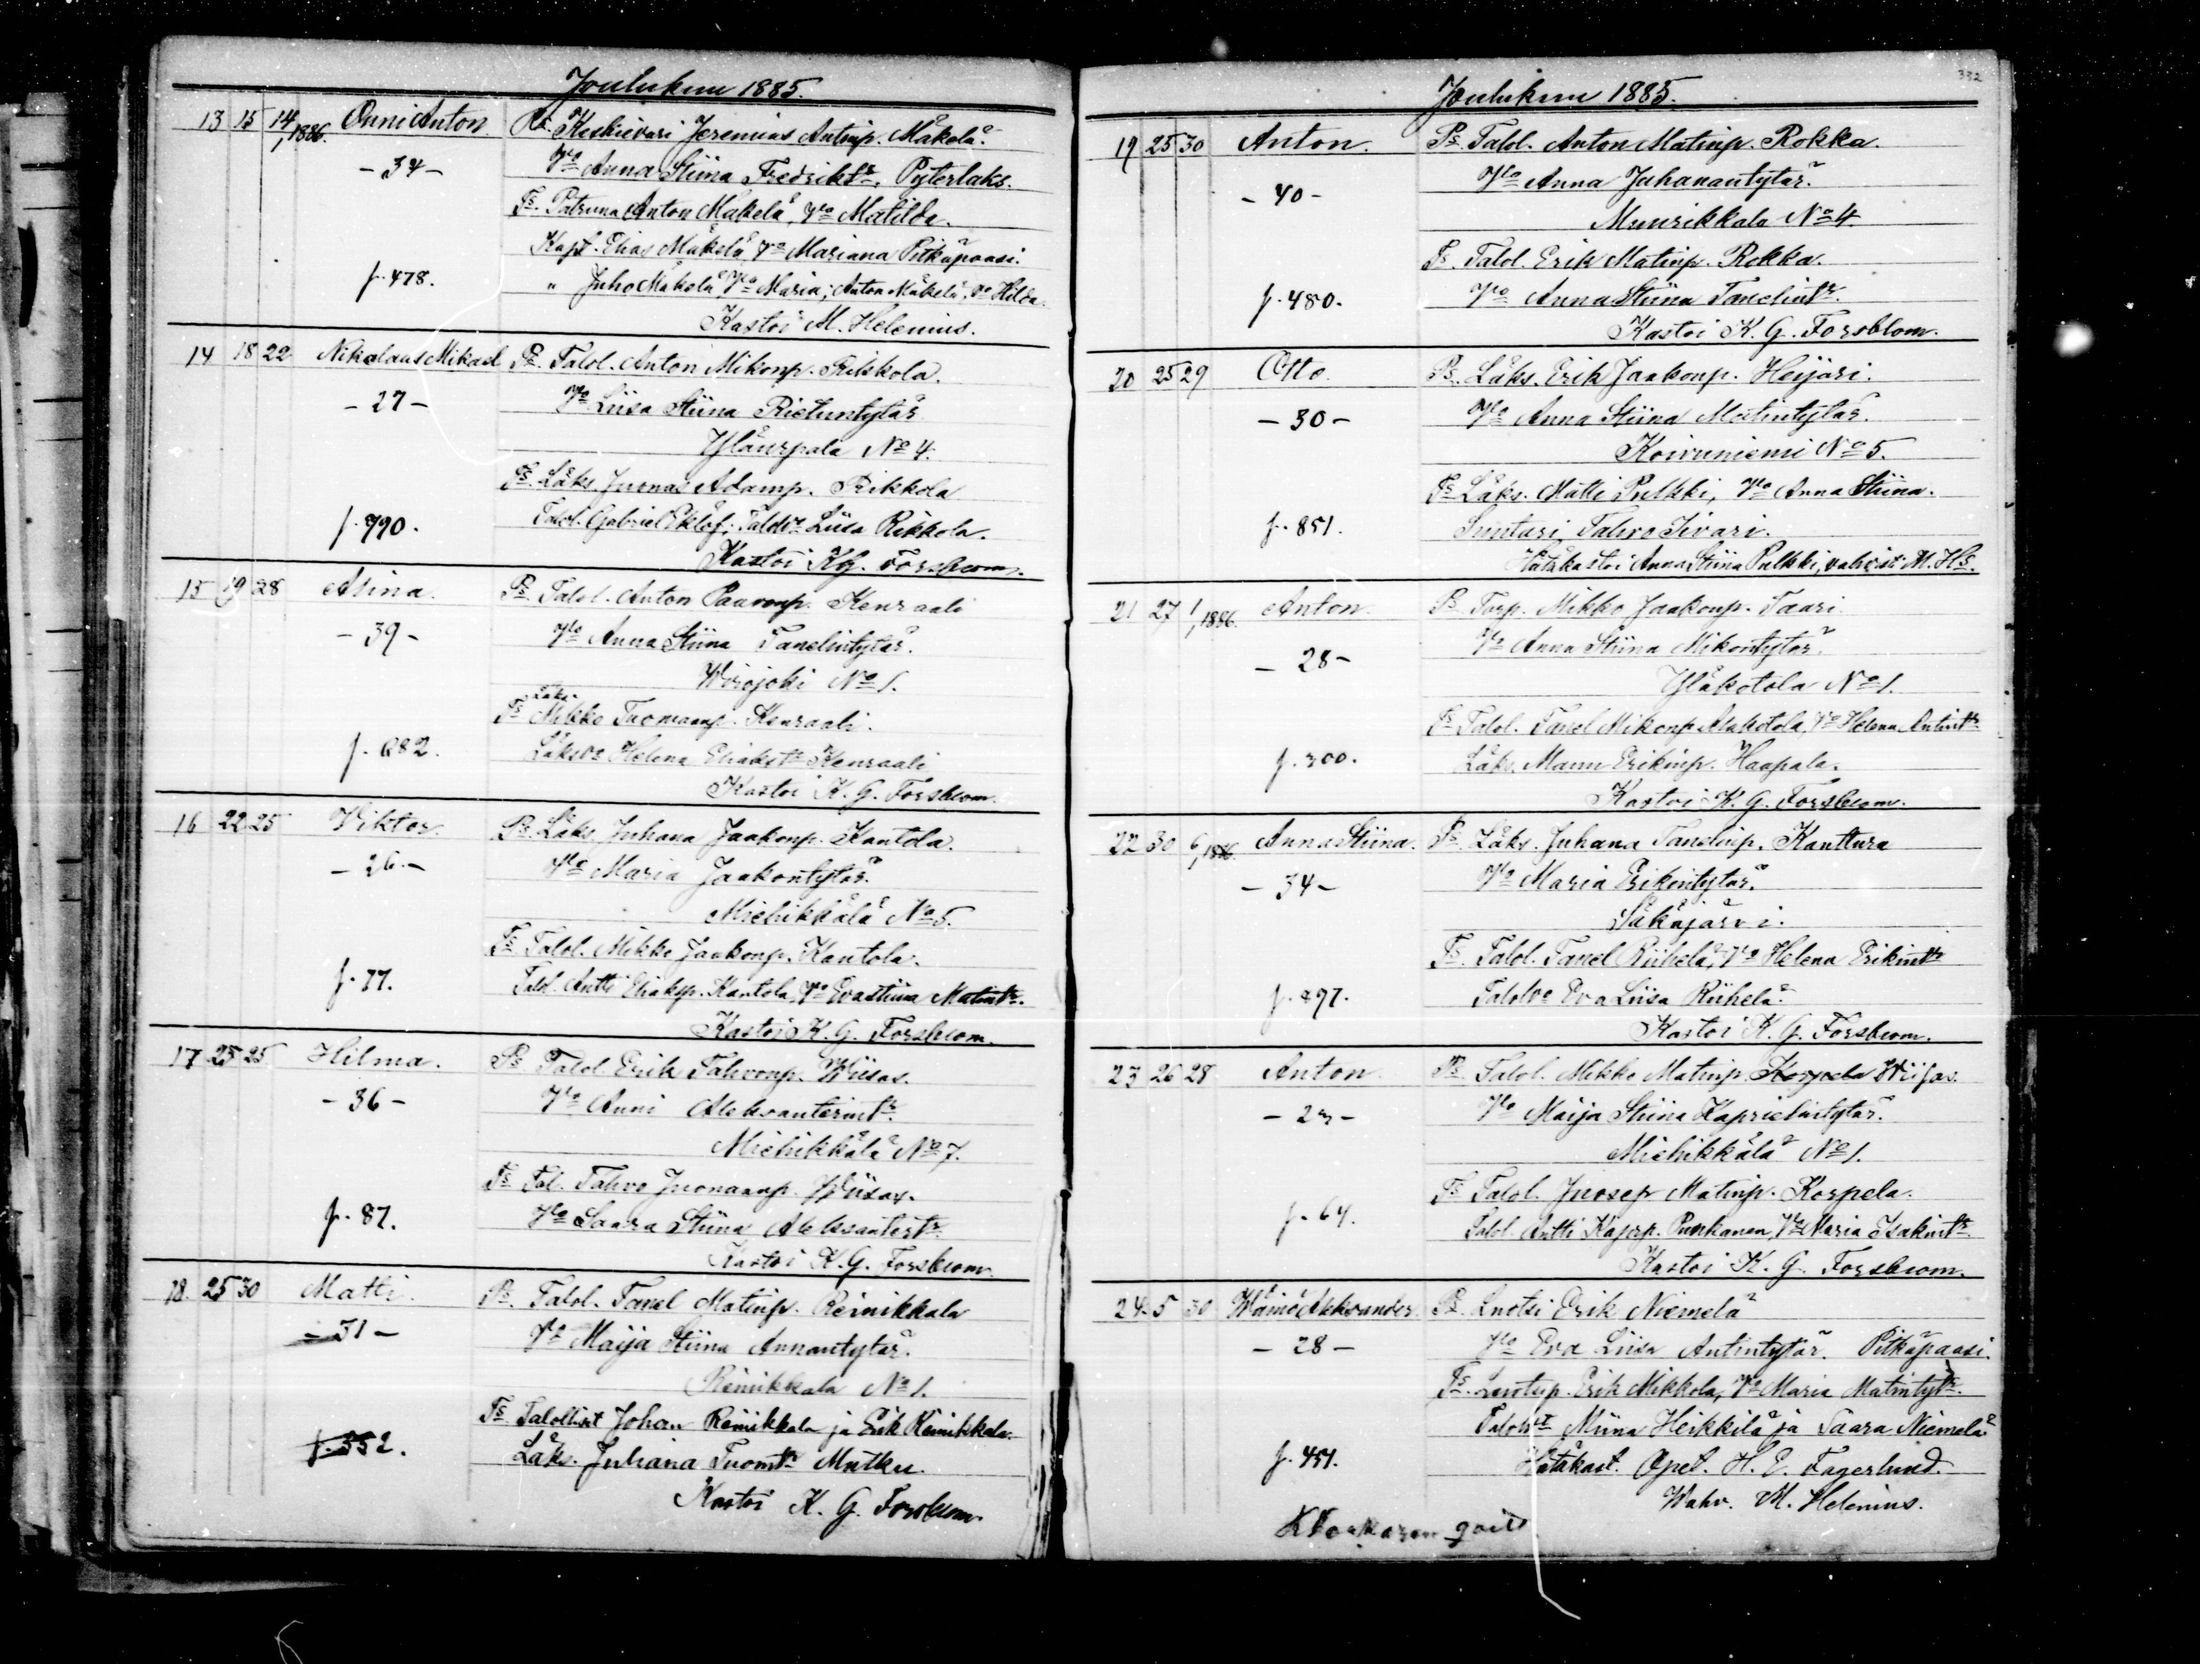 Joulukuu 1885.
13 15 14/1 1886. Onni Anton Ps. Keskievari Jeremias Antinp. Mäkelä.
- 34 - Vo Anna Stiina Fredrikt. Pyterlaks.
Ts. Patruna Anton Mäkelä, Vo Matilda.
Kapt. Elias Mäkelä, Vo Mariana Pitkäpaasi.
f. 478. " Juho Mäkelä, Vo Maria; Anton Mäkelä, Vo Hilda.
Kastoi M. Helenius.
14 18 22 Nikolaus Mikael Ps. Talol. Anton Mikonp.
- 27 - Vo Liisa Stiina
No 4.
Ts. Läks. Juonas Adamp. Rikkola
f. 790. Talol. Gabriel Eklöf; Talolvo Liisa Rikkola.
Kastoi K. G. Forsblom.
15 19 28 Alina. Ps. Talol. Anton Paavonp. Kenraali
- 39 - Vo Anna Stiina Tanelintytär.
Wirojoki No 1.
Läks.
Ts. Mikko Tuomaanp. Kenraali.
f. 682. Läksvo Helena Eliakst. Kenraali
Kastoi K. G. Forsblom.
16 22 25 Viktor. Ps. Läks. Juhana Jaakonp. Kantola.
- 26 - Vo Maria Jaakontytär.
Miehikkälä No 5.
Ts. Talol. Mikko Jaakonp. Kantola.
f. 77. Talol. Antti Eliaksp. Kantola, Vo Evastiina Matint.
Kastoi K. G. Forsblom.
17 25 25 Hilma. Ps. Talol. Erik Tahvonp. Wiisas.
- 36 - Vo Anni Aleksanterint.
Miehikkälä No 7.
Ts. Tal. Tahvo Juonaanp. Wiisas.
f. 87. Vo Saara Stiina Aleksantert.
Kastoi K. G. Forsblom.
18. 25 30 Matti. Ps. Talol. Tanel Matinp. Reinikkala
- 31 - Vo Maija Stiina Annantytär.
Reinikkala No 1.
Ts. Talolliset Johan Reinikkala ja Erik Reinikkala.
f. 552. Läks. Juhana Tuomt. Mutku.
Kastoi K. G. Forsblom.
332
Joulukuu 1885.
19 25 30 Anton. Ps. Talol. Anton Matinp. Rokka.
- 40 - Vo Anna Juhanantytär.
Muurikkala No 4.
Ts. Talol. Erik Matinp. Rokka.
f. 480. Vo Anna Stiina Tanelint.
Kastoi K. G. Forsblom.
20 25 29 Otto. Ps. Läks. Erik Jaakonp. Heijari.
- 30 - Vo Anna Stiina Matintytär.
Koivuniemi No 5.
Ts. Läks. Matti Pulkki, Vo Anna Stiina.
f. 851. Suutari Tahvo Sivari.
Hätäkastoi Anna Stiina Pulkki, vahvisti M. Hs.
21 27 1/1 1886. Anton. Ps. Torp. Mikko Jaakonp. Taari.
- 28 - Vo Anna Stiina Mikontytär.
Yläkotola No 1.
Ts. Talol. Tanel Mikonp. Alakotola, Vo Helena Antint.
f. 300. Läks. Manu Erikinp. Haapala.
Kastoi K. G. Forsblom.
22 30 6/1 1886. Anna Stiina. Ps. Läks. Juhana Tanelinp. Kanttura
- 34 - Vo Maria Erikintytär.
Säkäjärvi.
Ts. Talol. Tanel Riihelä, Vo Helena Erikint.
f. 897. Talolvo Eva Liisa Riihelä.
Kastoi K. G. Forsblom.
23 26 28 Anton. Ps. Talol. Mikko Matinp. Korpela Wiisas.
Vo Maija Stiina Kaprielintytär.
Miehikkälä No 1.
Ts. Talol. Juosep Matinp. Korpela.
f. 64. Talol. Antti Kasprp. Vo Maria Isakint.
Kastoi K. G. Forsblom.
24. 5 30 Wäinö Aleksander. Ps. Luotsi Erik Niemelä
- 28 - Vo Eva Liisa Antintytär. Pitkäpaasi.
Ts. Luotsp. Erik Mikkola, Vo Maria Matintyt.
Talolvt. Miina Heikkilä ja Saara Niemelä
f. 451. Hätäkast. Opet. H. E. Fagerlund.
Wahv. M. Helenius.